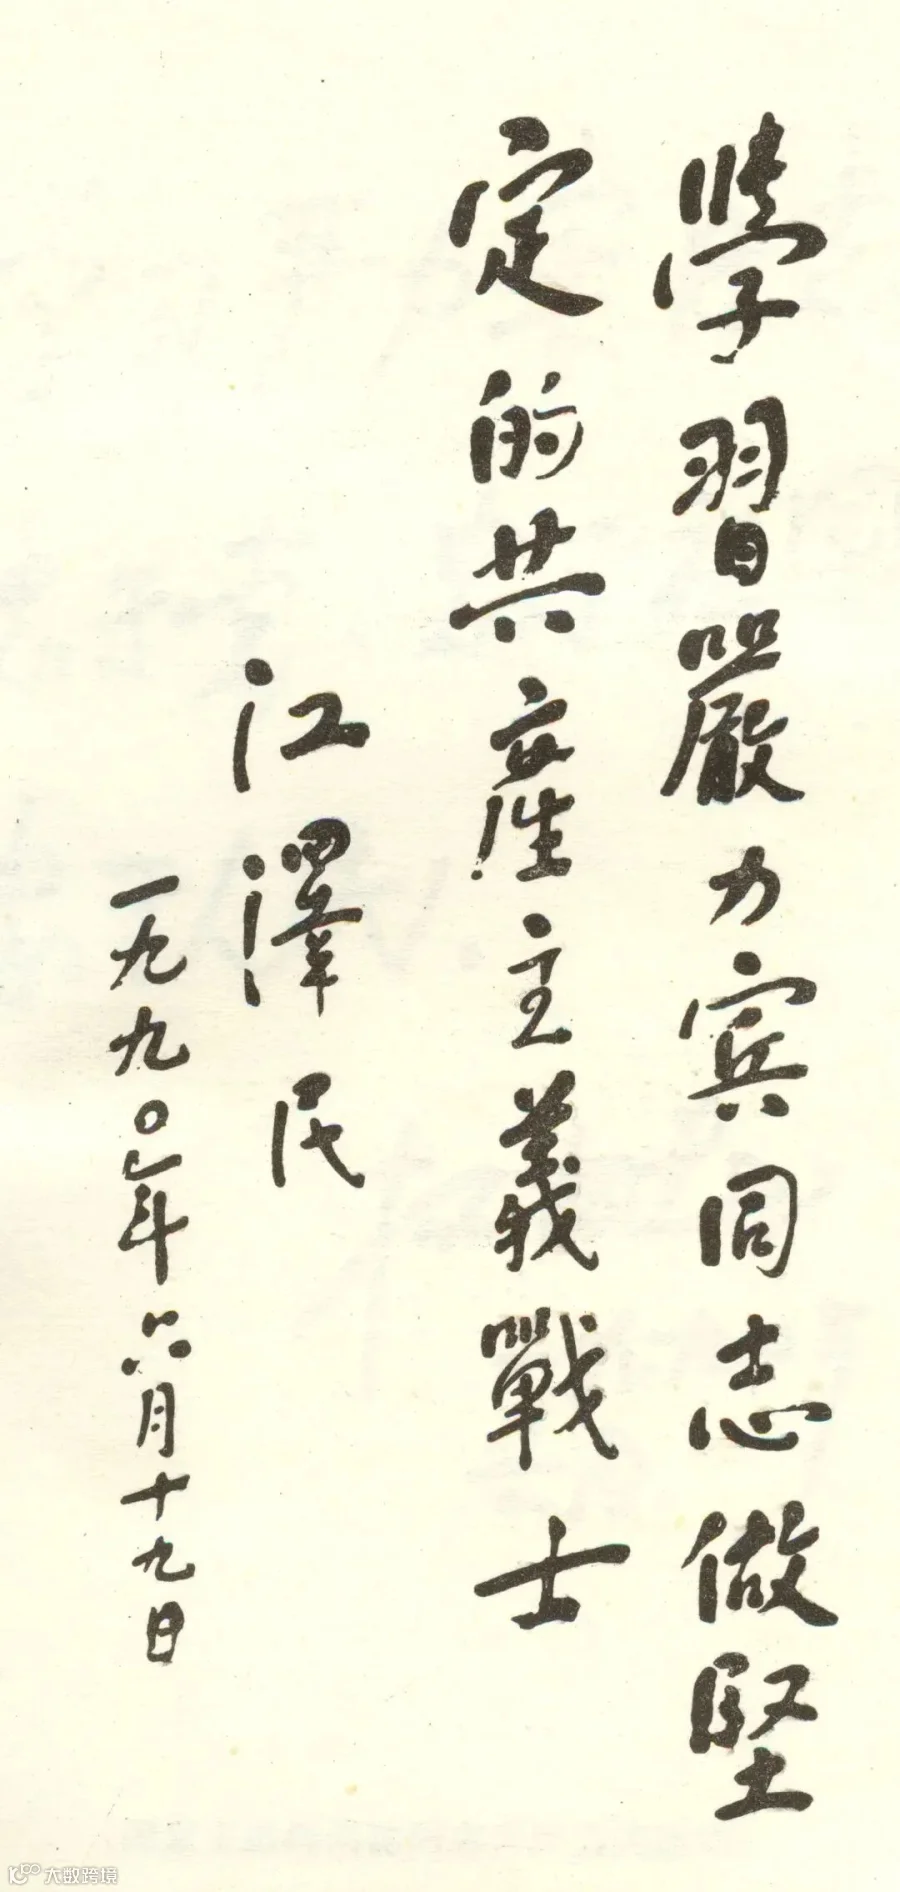 學習嚴力宾同志做堅
定的共產主義戰士
江澤民
一九九〇年六月十九日
大数跨境